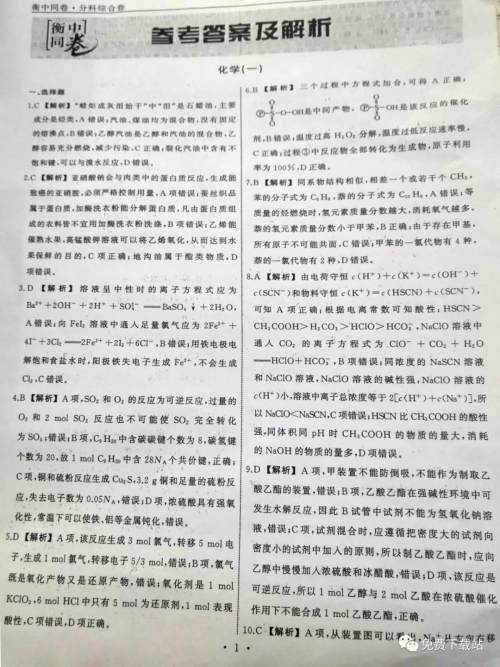 衡中同卷·分科综合卷
衡中同卷
参考答案及解析
化学(一)
一、选择题
1.C 【解析】 “蜡炬成灰泪始干”中“泪”是石蜡油,主要
成分是烃类,A错误;汽油、煤油均为混合物,没有固定
的熔沸点,B错误;乙醇汽油是乙醇和汽油的混合物,乙
醇容易充分燃烧,减少污染,C正确;裂化汽油中含有不
饱和键,可以与溴水反应,D错误。
2.C 【解析】 亚硝酸钠会与肉类中的蛋白质反应,生成能
致癌的亚硝胺,必须严格控制用量,A项错误;蚕丝织品
属于蛋白质,加酶洗衣粉能分解蛋白质,凡由蛋白质组
成的衣料皆不宜用加酶洗衣粉洗涤,B项错误;乙烯能
催熟水果,高锰酸钾溶液可以将乙烯氧化,从而达到水
果保鲜的目的,C项正确;地沟油属于酯类物质,D
项错误。
3.D 【解析】 溶液呈中性时的离子方程式应为
Ba²⁺+2OH⁻+2H⁺+SO₄²⁻══BaSO₄↓+2H₂O,
A错误;向FeI₂溶液中通入足量氯气应为2Fe²⁺+
4I⁻+3Cl₂══2Fe³⁺+2I₂+6Cl⁻,B错误;用铁电极电
解饱和食盐水时,阳极铁失电子生成Fe²⁺,不会生成
Cl₂,C错误。
4.B 【解析】 A项,SO₂和O₂的反应为可逆反应,过量的
O₂和2 mol SO₂反应也不可能使SO₂完全转化
为SO₃,错误;B项,C₉H₂₀中含碳碳键个数为8,碳氢键
个数为20,故1 mol C₉H₂₀中含28Nₐ个共价键,正确;
C项,铜和硫粉反应生成Cu₂S,3.2 g铜和足量的硫粉反
应,失去电子数为0.05Nₐ,错误;D项,浓硫酸具有强氧
化性,常温下可以使铁、铝等金属钝化,错误。
5.D 【解析】 A项,该反应生成3 mol氯气,转移5 mol电
子,生成1 mol氯气,转移电子5/3 mol,错误;B项,氯气
既是氧化产物又是还原产物,错误;氧化剂是1 mol
KClO₃,6 mol HCl中只有5 mol为还原剂,1 mol表现
酸性,C项错误,D项正确。
6.B 【解析】 三个过程中方程式加合,可得A正确;
Ⓟ-S-O-OH是中间产物,Ⓟ-S-OH是该反应的催化
剂,B错误;温度过高H₂O₂分解,温度过低反应速率慢,
C正确;过程③中反应物全部转化为生成物,原子利用
率为100%,D正确。
7.B 【解析】 同系物结构相似,相差一个或若干个CH₂,
苯的分子式为C₆H₆,萘的分子式为C₁₀H₈,A错误;等
质量的烃燃烧时,氢元素质量分数越大,消耗氧气越多,
萘的氢元素质量分数小于甲苯,B正确;由于存在甲基,
所有原子不可能共面,C错误;甲苯的一氯代物有4种,
萘的一氯代物有2种,D错误。
8.A 【解析】 由电荷守恒c(H⁺)+c(K⁺)=c(OH⁻)+
c(SCN⁻)和物料守恒c(K⁺)=c(HSCN)+c(SCN⁻),
可知A项正确;根据电离常数可知酸性:HSCN>
CH₃COOH>H₂CO₃>HClO>HCO₃⁻,NaClO溶液中
通入CO₂的离子方程式为ClO⁻+CO₂+H₂O
══HClO+HCO₃⁻,B项错误;同浓度的NaSCN溶液
和NaClO溶液,NaClO溶液的碱性强,NaClO溶液的
c(H⁺)小,溶液中离子总浓度等于2[c(H⁺)+c(Na⁺)],所
以NaClO<NaSCN,C项错误;HSCN比CH₃COOH的酸性
强,同体积同pH时CH₃COOH的物质的量大,消耗
的NaOH的物质的量多,D项错误。
9.D 【解析】 A项,甲装置不能防倒吸,不能作为制取乙
酸乙酯的装置,错误;B项,乙酸乙酯在强碱性环境中可
发生水解反应,因此B试管中试剂不能为氢氧化钠溶
液,错误;C项,试剂混合时,应遵循把密度大的试剂向
密度小的试剂中加入的原则,所以制乙酸乙酯时,应向
乙醇中慢慢加入浓硫酸和冰醋酸,错误;D项,该反应是
可逆反应,所以1 mol乙醇与2 mol乙酸在浓硫酸催化
作用下不能合成1 mol乙酸乙酯,正确。
10.C 【解析】 A项,从装置图可以看出,Na⁺从左向右移
·1·
免费下载站